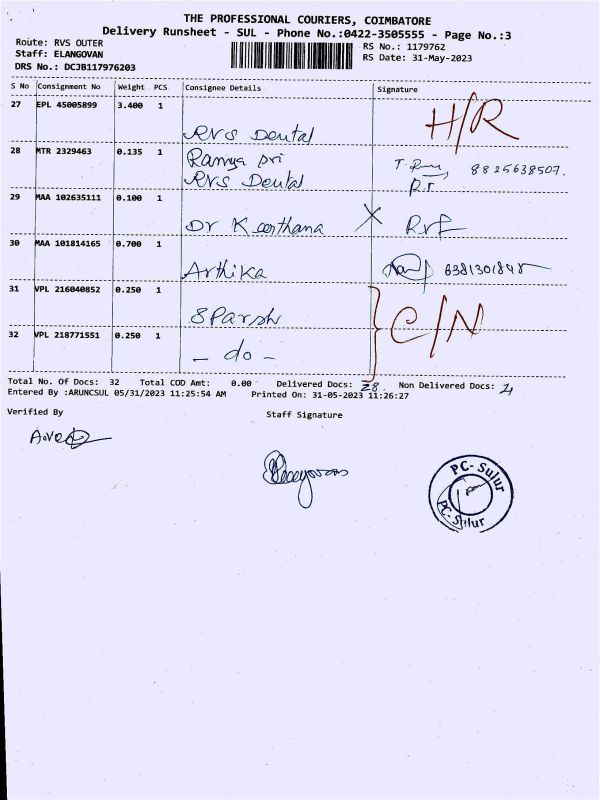 THE PROFESSIONAL COURIERS, COIMBATORE
Delivery Runsheet - SUL - Phone No.:0422-3505555 - Page No.:3
Route: RVS OUTER
Staff: ELANGOVAN
DRS No.: DCJB117976203
RS No.: 1179762
RS Date: 31-May-2023
S No Consignment No Weight PCS Consignee Details Signature
27 EPL 45005899 3.400 1
RVS Dental H/R
28 MTR 2329463 0.135 1 Ramya Sri
RVS Dental 8825638507.
29 MAA 102635111 0.100 1
Dr Keerthana X
30 MAA 101814165 0.700 1
Arthika 6381301848
31 VPL 216040852 0.250 1
SParsh C/N
32 VPL 218771551 0.250 1
- do -
Total No. Of Docs: 32 Total COD Amt: 0.00 Delivered Docs: 28 Non Delivered Docs: 4
Entered By :ARUNCSUL 05/31/2023 11:25:54 AM Printed On: 31-05-2023 11:26:27
Verified By Staff Signature
PC-Sulur
PC-Sulur